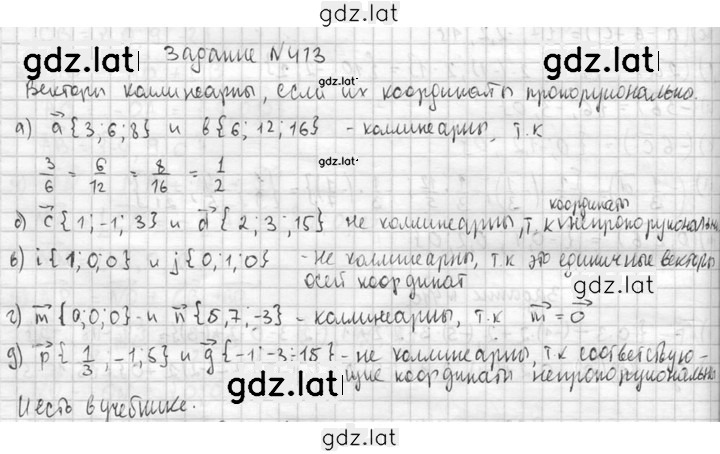 gdz.lat
gdz.lat Задание №413 gdz.lat
Векторы коллинеарны, если их координаты пропорциональны.
а) a {3; 6; 8} и в{6; 12; 16} - коллинеарны, т.к
3/6 = 6/12 = 8/16 = 1/2 gdz.lat
координаты
б) c {1; -1; 3} и d {2; 3; 15} не коллинеарны, т.к непропорциональны
в) i {1; 0; 0} и j {0; 1; 0} - не коллинеарны, т.к это единичные векторы
осей координат
г) m {0; 0; 0} и n {5, 7; -3} - коллинеарны, т.к m = 0
д) p { 1/3; -1; 5} и g {-1; -3; 15} - не коллинеарны, т.к соответствую-
gdz.lat щие координаты непропорциональны
И есть в учебнике.
gdz.lat